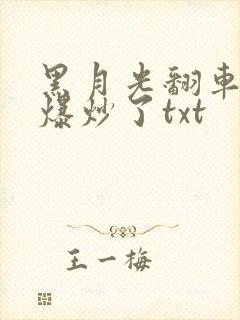 黑月光翻車
爆炒了txt
王一梅